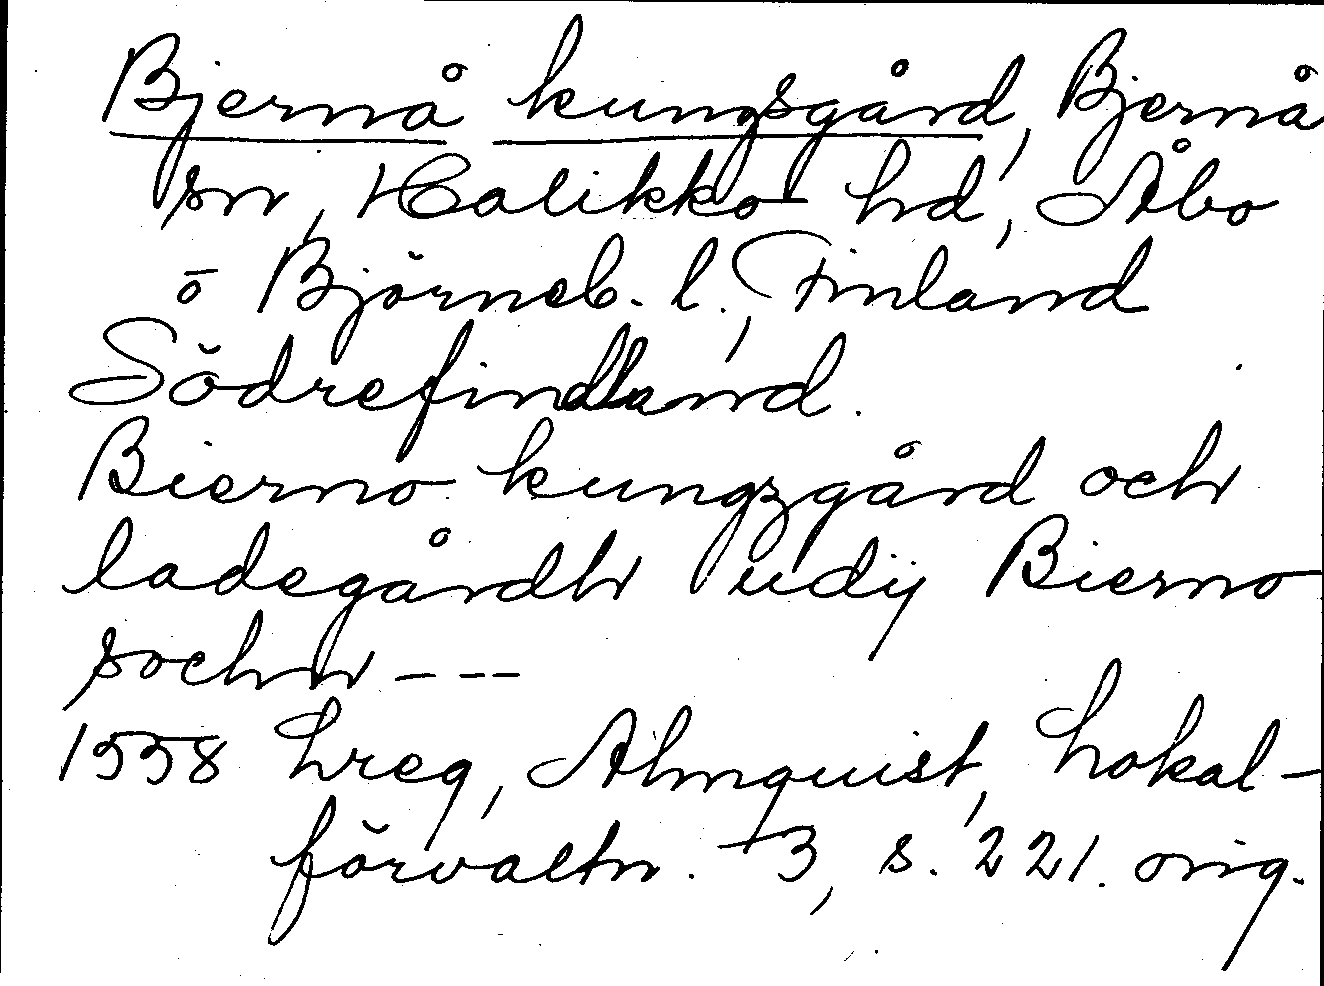 Bjernå kungsgård, Bjernå
sn, Halikko hd, Åbo
o Björneb. l., Finland
Södrefindland.
Bierno kungzgård och
ladegårdh udij Bierno
sochn ---
1558 hreg, Almquist, Lokal-
förvaltn. 3, s. 221. orig.